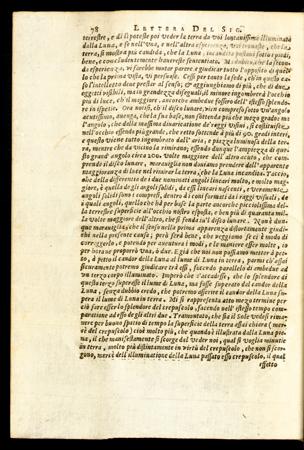 78 LETTERA DEL SIG.
terrestre, e di lì potesse poi veder la terra da voi lontanissima illuminata
dalla Luna, e se nell'una, e nell'altra esperienza, voi trovaste, che la
terra, si mostra più candida, che la Luna,
bene, e concludentemente havereste sentenziato. Mà
d'esperienza, vi farebbe mutar parere, e giudicar tutto l'opposito di quello
che la prima vista, vi persuase. Cessi per tanto la sede, ch'in questo caso
l'intelletto deve prestar al senso, & aggiunghiamo di più, che di due
oggetti visibili, mà in grandezza diseguali, il minore ingombrerà l'occhio
più di luce, ch'il maggiore, ancorche ambedue fossero dell'istesso splendore
in ispetie. Ora notisi, che il disco lunare, vien compreso sotto un'angolo
acutissimo, avenga, che la sua base, non sottenda più che mezo grado: ma
l'angolo, che dalla massima divaricazione de' raggi visuali, si costituisce
nell'occhio essendo più grande, che retto sottende à più di 90. gradi interi,
e questo viene tutto ingombrato dall'aria, e piazza luminosa della terra,
mentre che da vicino la rimiriamo, essendo dunque l'ampiezza di questo
grand'angolo circa 200. volte maggiore dell'altro acuto, che comprende
il disco lunare, maraviglia non dovrà prendere dell'apparente
maggioranza di luce nel rimirar la terra, che la Luna incandita. Taccio,
che della differenza de i due nominati angoli lineari, molto, e molto maggiore,
è quella de gli angoli solidi, da essi lineari nascenti, e veramente
angoli solidi sono i compresi, dentro à i coni formati dai raggi visuali, de
i quali angoli, quello che hà per base la parte ancorche piccolissima della
terrestre superficie all'occhio nostro esposta, è ben più di quaranta mila
volte maggiore dell'altro, che si fonda su'l disco lunare. Non è dunque
maraviglia, che il senso nella prima apparenza si disorienti giudichi
nella presente causa; però sarà bene, che veggiamo se ci è modo di
correggerlo, e potendo per aventura i modi, e le maniere esser molte, io
per hora ne proporrò una, è dice. Già che noi non possiamo mettere à petto,
à petto il candor della Luna al lume di Luna in terra, parmi ch'assai
sicuramente potremo giudicare trà essi, facendo parallelo di ambedue ad
un terzo corpo illuminato. Imperò che se accadesse, che lo splendore di
questo terzo superasse il lume di Luna, ma fosse superato dal candor della
Luna, senza dubbio credo, che potremo asserire il candor della Luna superar
il lume di Luna in terra. Mi si rappresenta atto mezo termine per
ciò fare esser lo splendore del crepuscolo, facendo nell'istesso tempo comparazione
ad esso degli altri due. Tramontato, che sia il Sole vedesi rimanere
per buono spatio di tempo la superficie della terra assai chiara (mercè
del crepuscolo) ciò molto più, che quando è illustrata dalla Luna piena,
il che manifestamente si scorge dal veder noi, qual si voglia minutie
in terra, molto più distintamente in virtù del crepuscolo, che non si scorgono,
mercè dell'illuminazione della Luna passato esso crepuscolo, il qual
effetto